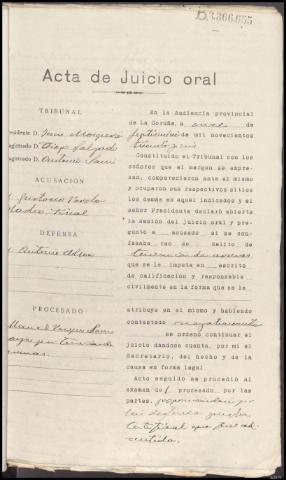 B3.866.655
Acta de Juicio oral
TRIBUNAL
esidente D. 
gistrado D. Diego Salgado
gistrado D. Antonio
ACUSACIÓN
Gustavo Varela
Fiscal
DEFENSA
Antonio
PROCESADO
Manuel Vazquez
por tenencia de
armas.
En la Audiencia provincial
de La Coruña, a once de
septiembre de mil novecientos
treinta y seis
Constituído el Tribunal con los
señores que al margen se expre-
san, comparecieron ante el mismo
y ocuparon sus respectivos sitios
los demás en aquél indicados y el
señor Presidente declaró abierta
la sesión del juicio oral y pre-
guntó a acusado si se con-
fesaba reo de delito de
tenencia de armas
que se le imputa en escrito
de calificación y responsable
civilmente en la forma que se le
atribuye en el mismo y habiendo
contestado negativamente
se ordenó continuar el
juicio dándose cuenta, por mí el
Secretario, del hecho y de la
causa en forma legal.
Acto seguido se procedió al
examen del procesado, por las
partes, proponiendose por
la defensa prueba
testifical que fue ad-
mitida.